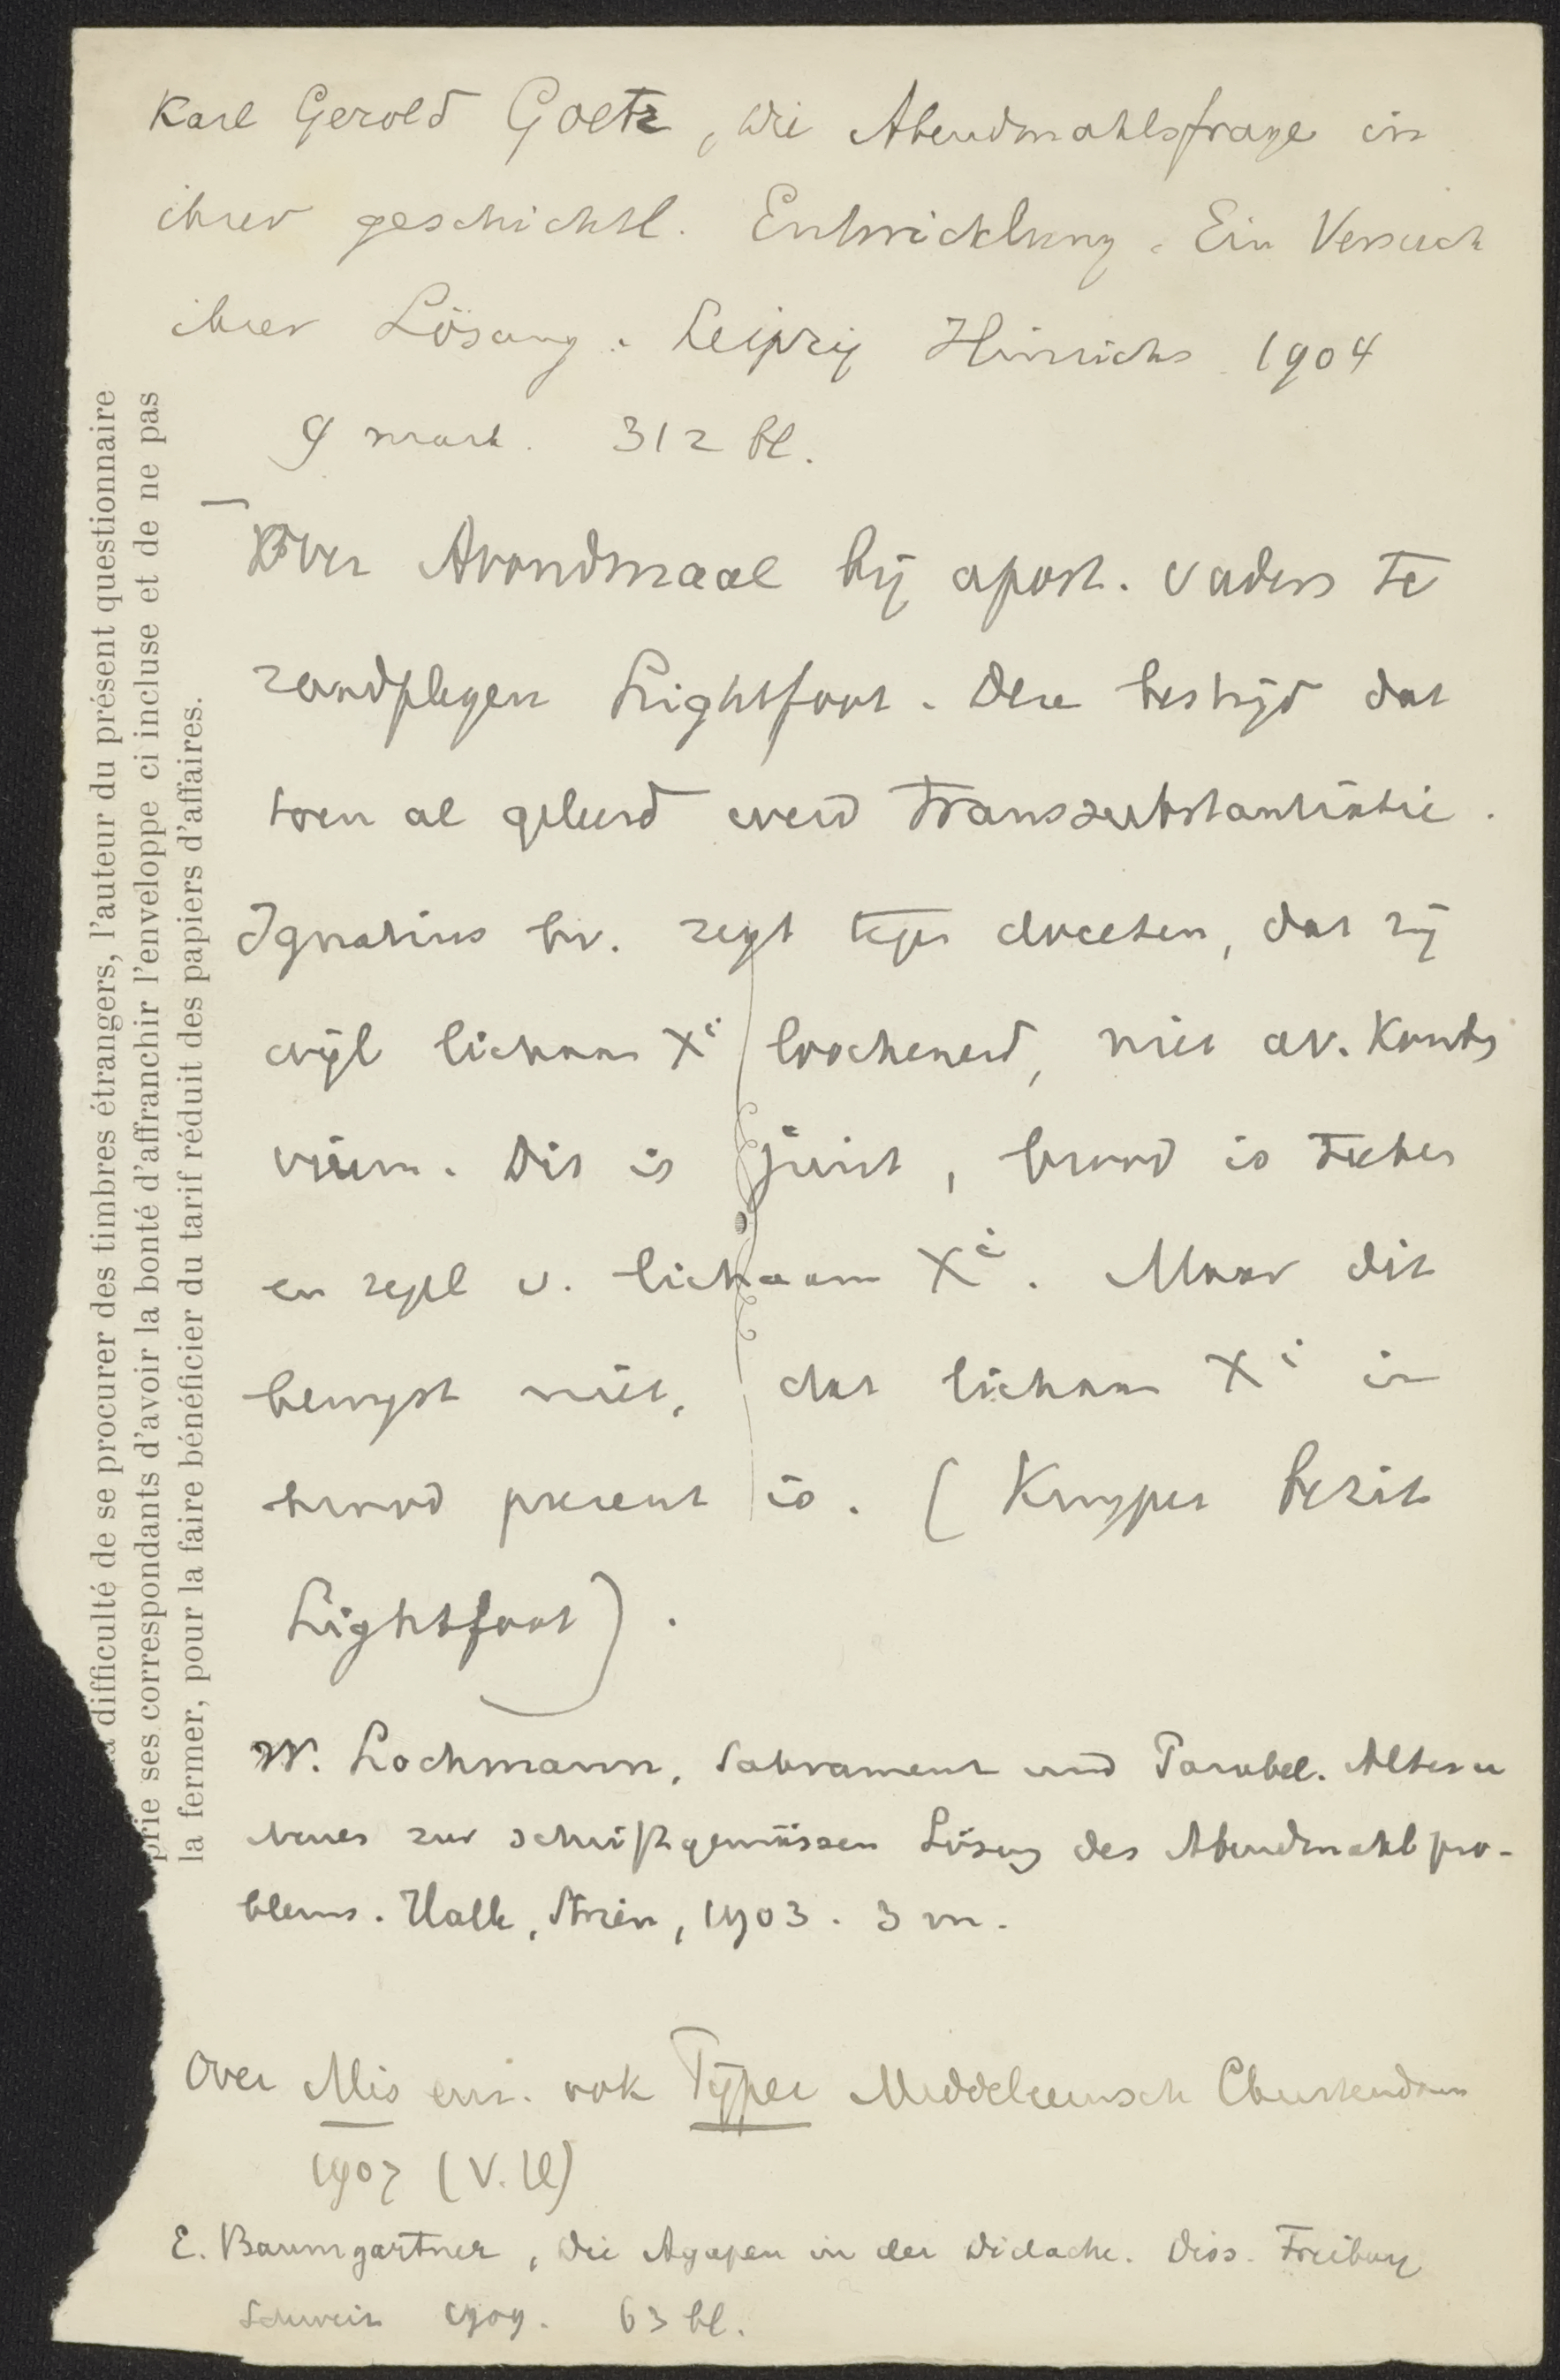 Karl Gerold Goetz, Die Abendmahlsfrage in
ihrer geschichtl. Entwicklung. Ein Versuch
ihrer Lösung. Leipzig Hinrichs 1904
9 mark. 312 bl.
Over Avondmaal bij apost. vaders te
raadplegen Lightfoot. Deze bestrijd dat
toen al geleerd werd Transsubstantiatie.
Ignatius bv. zegt tegen doceten, dat zij
wijl lichaam Xi loochenend, niet av. konden
vieren. Dit is juist, brood is teeken
en zegel v. lichaam Xi. Maar dit
bewijst niet, dat lichaam Xi in
brood present is. (Kuyper bezit
Lightfoot).
W. Lochmann, Sakrament und Parabel. Altes u
Neues zur schriftgemässen Lösung des Abendmahlspro-
blems. Halle, Strien, 1903. 3 m.
Over Mis enz. ook Pijper Middeleeuwsch Christendom
1907 (V.U)
E. Baumgartner, Die Agapen in der Didache. Diss. Freiburg
Schweiz 1909. 63 bl.
difficulté de se procurer des timbres étrangers, l'auteur du présent questionnaire
prie ses correspondants d'avoir la bonté d'affranchir l'enveloppe ci incluse et de ne pas
la fermer, pour la faire bénéficier du tarif réduit des papiers d'affaires.